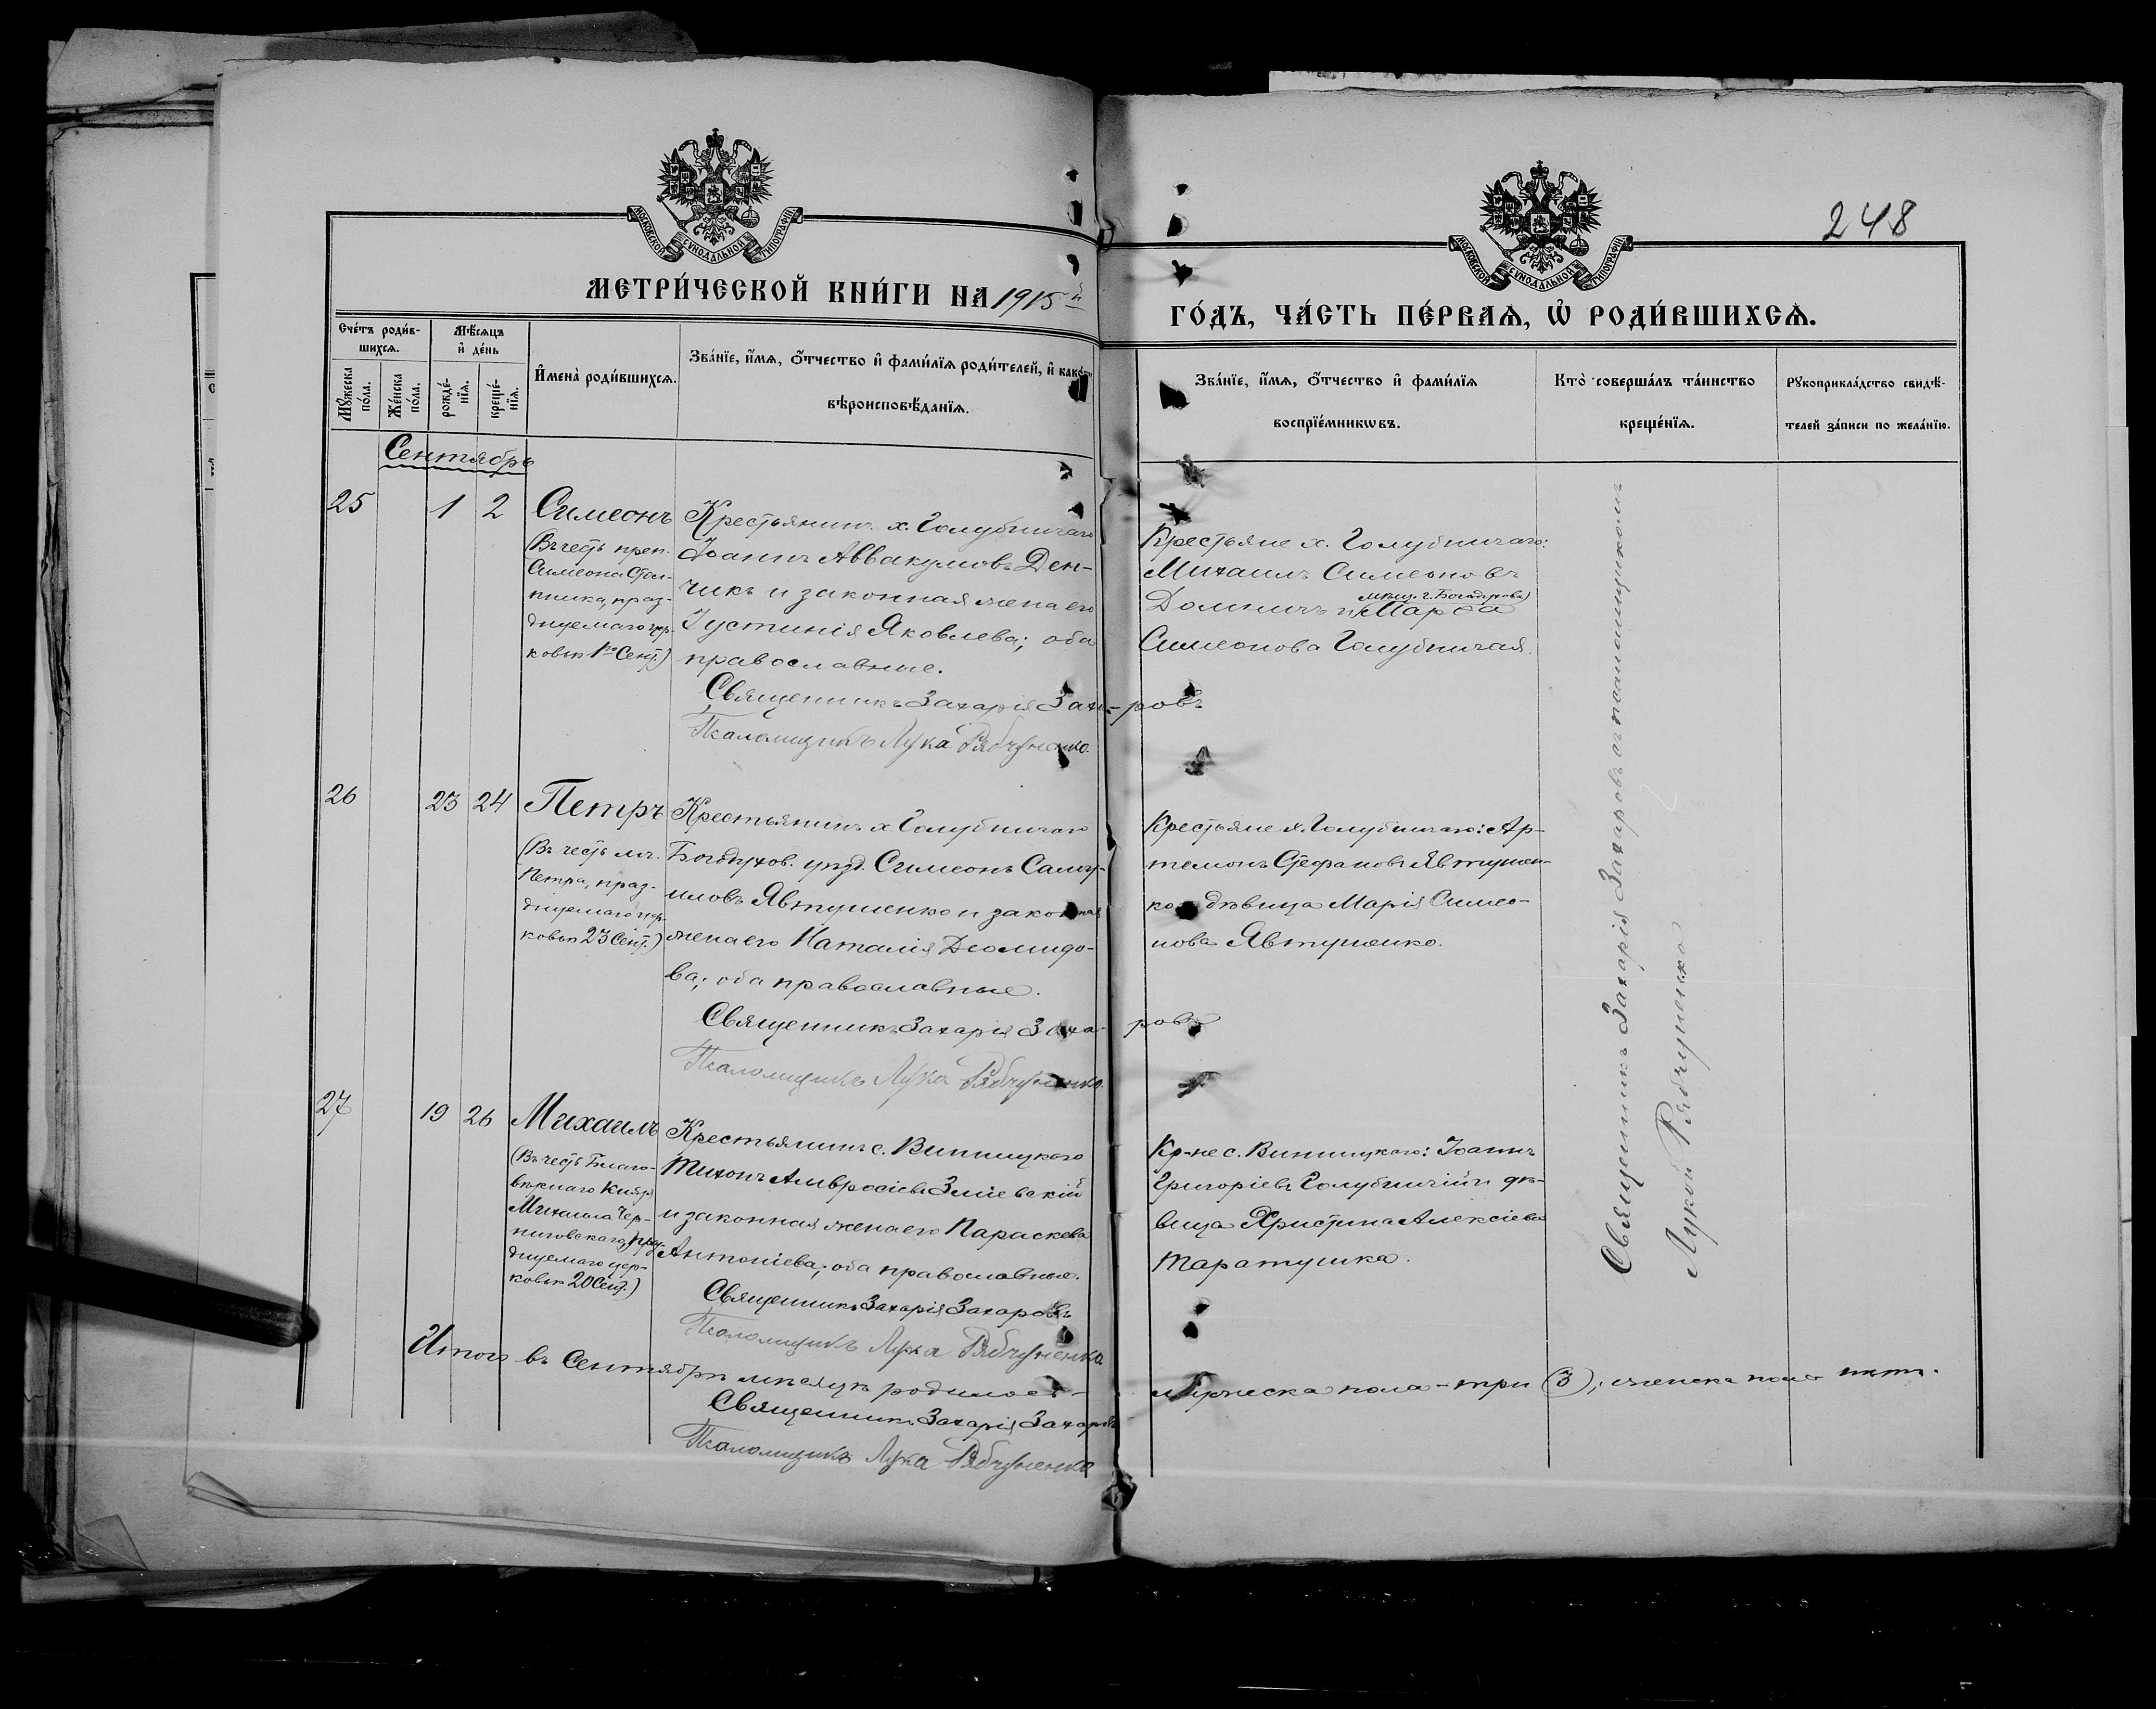 248
МОСКОВСКОЙ СѴНОДАЛЬНОЙ ТИПОГРАФІИ
МОСКОВСКОЙ СѴНОДАЛЬНОЙ ТИПОГРАФІИ
МЕТРИ́ЧЕСКОЙ КНИ́ГИ НА 1915 й
ГО́ДЪ, ЧА́СТЬ ПЕ́РВАѦ, Ѡ҆ РОДИ́ВШИХСѦ.
Сче́тъ роди́в-
шихсѧ.
Мѣ́сѧцъ
и҆ де́нь
Мꙋ́жеска
по́ла.
Же́нска
по́ла.
рожде́-
нїѧ.
креще́-
нїѧ.
И҆мена̀ роди́вшихсѧ.
Зва́нїе, и҆́мѧ, ѻ҆́тчество и҆ фами́лїѧ роди́телей, и҆ како́гѡ
вѣроисповѣ́данїѧ.
Зва́нїе, и҆́мѧ, ѻ҆́тчество и҆ фами́лїѧ
воспрїе́мникѡвъ.
Кто̀ соверша́лъ та́инство
креще́нїѧ.
Рꙋкоприкла́дство свидѣ́-
телей за́писи по жела́нїю.
Сентябрь
25 1 2 Симеонъ
(Въ честь преп.
Симеона Стол-
пника, праз-
днуемаго цер-
ковью 1го Сент.)
Крестьянинъ х. Голубничаго
Іоаннъ Аввакумовъ Дон-
чикъ и законная жена его
Іустинія Яковлева; оба
православные.
Священникъ Захарія Заха-ровъ
Псаломщикъ Лука Рябчуненко
Крестьяне х. Голубничаго:
Михаилъ Симеоновъ
мѣщ. г. Богодухова
и Марфа
Симеонова Голубничая.
26 23 24 Петръ
(Въ честь мч.
Петра, праз-
днуемаго цер-
ковью 23 Сент.)
Крестьянинъ х Голубничаго
Богодухов. уѣзд. Симеонъ Саму-
иловъ Явтушенко и законная
жена его Наталія Діомидо-
ва; оба православные.
Священникъ Захарія Заха-ровъ
Псаломщикъ Лука Рябчуненко
Крестьяне х. Голубничаго: Ар-
темонъ Стефановъ Явтушен-
ко и дѣвица Марія Симео-
нова Явтушенко.
27 19 26 Михаилъ
(Въ честь Благо-
вѣрнаго Князя
Михаила Чер-
ниговскаго, праз-
днуемаго цер-
ковью 20 Сент.)
Крестьянинъ с. Винницкаго
Тихонъ Амвросіевъ Зміевскій
и законная жена его Параскева
Антоніева; оба православные.
Священникъ Захарія Захаровъ
Псаломщикъ Лука Рябчуненко
Кр-не с. Винницкаго: Іоаннъ
Григоріевъ Голубничій и дѣ-
вица Христина Алексіева
Таратушка.
Священникъ Захарія Захаровъ съ псаломщикомъ
Лукой Рябчуненко
Итого въ Сентябрѣ мѣсяцѣ родилось-
мужеска пола - три (3); женска пола нѣтъ.
Священникъ Захарія Захаровъ
Псаломщикъ Лука Рябчуненко